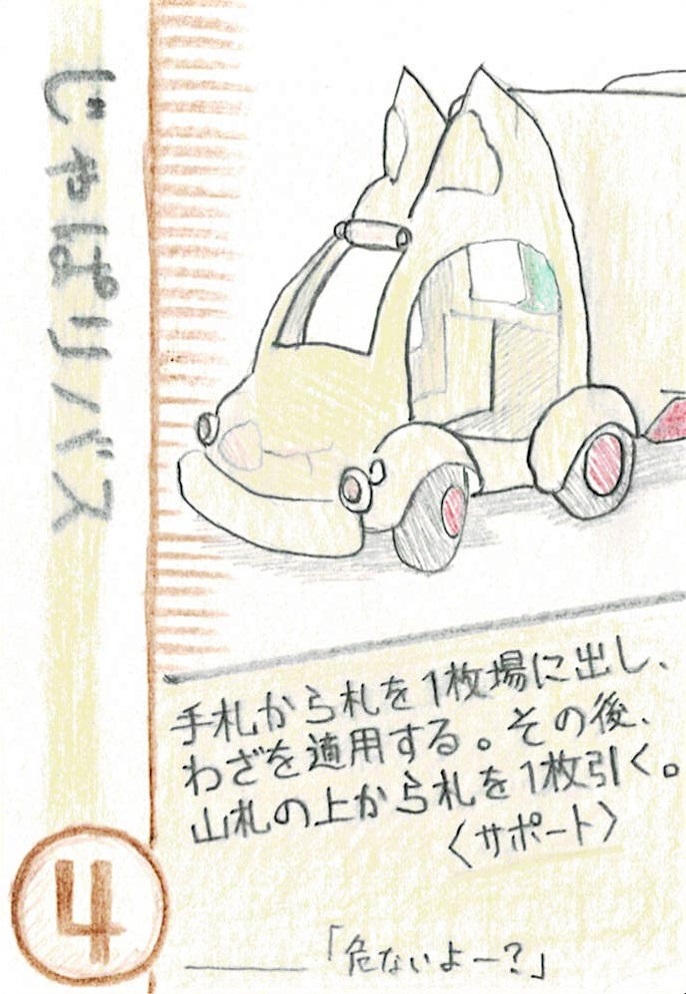 じゃぱりバス
手札から札を1枚場に出し、
わざを適用する。その後、
山札の上から札を1枚引く。
〈サポート〉
4
「危ないよー?」